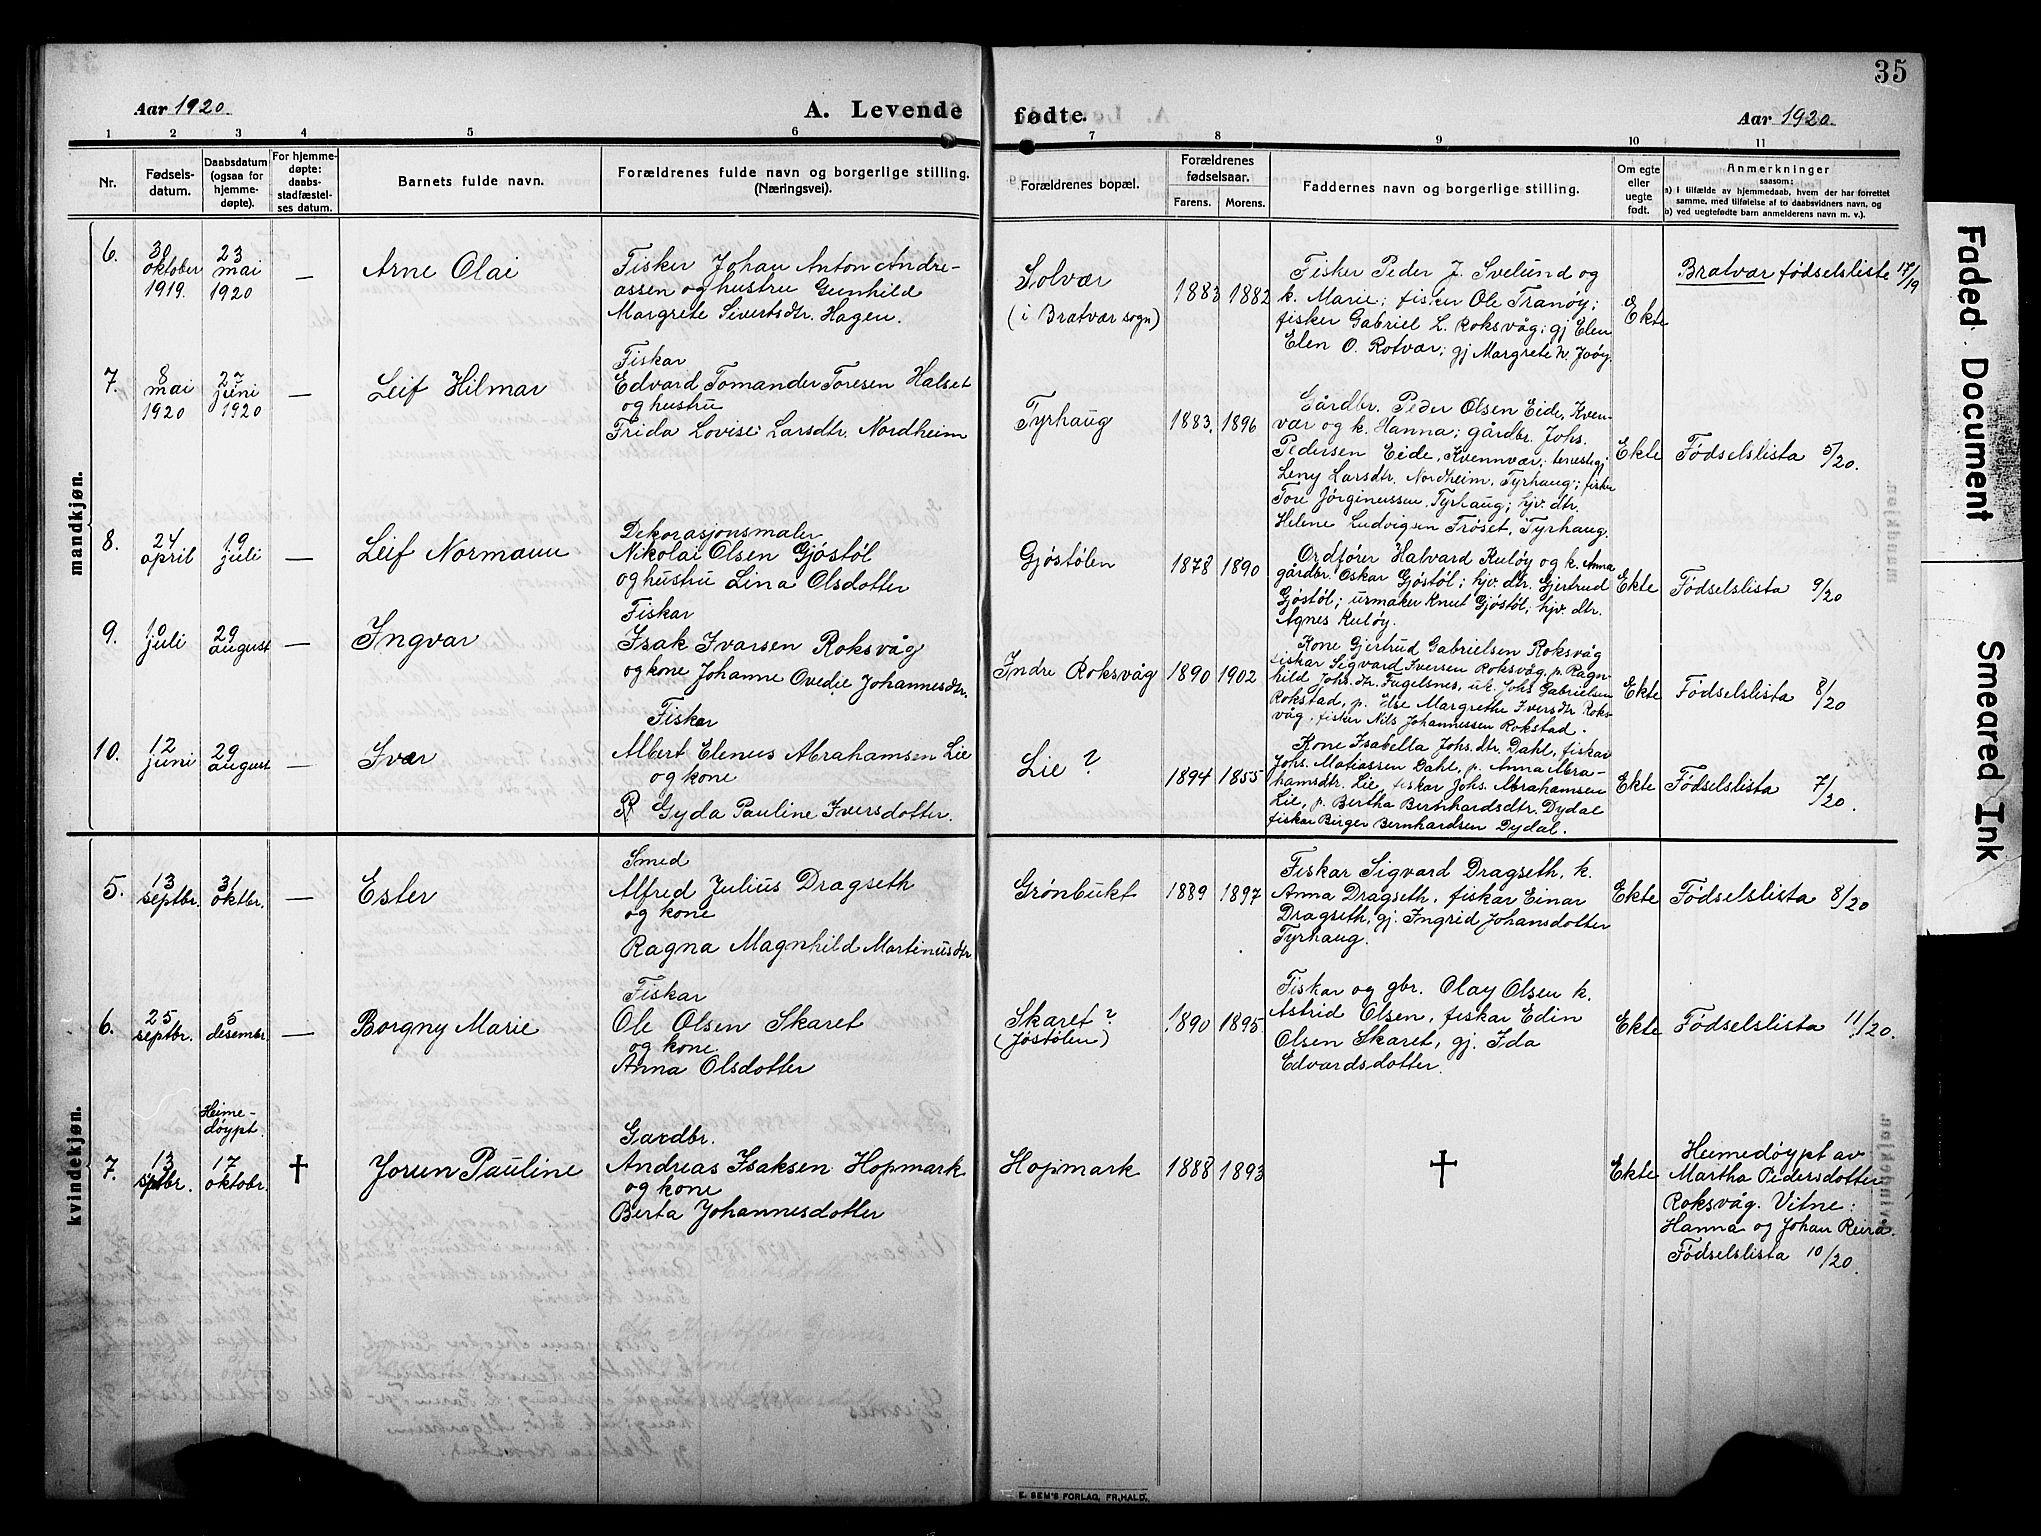 35
Aar 1920.
A. Levende
fødte.
Aar 1920.
1 2 3 4 5 6 7 8 9 10 11
Nr.
Fødsels-
datum.
Daabsdatum
(ogsaa for
hjemme-
døpte).
For hjemme-
døpte:
daabs-
stadfæstel-
ses datum.
Barnets fulde navn.
Forældrenes fulde navn og borgerlige stilling.
(Næringsvei).
Forældrenes bopæl.
Forældrenes
fødselsaar.
Farens. Morens.
Faddernes navn og borgerlige stilling.
Om egte
eller
uegte
født.
Anmerkninger
saasom:
a) i tilfælde av hjemmedaab, hvem der har forrettet
samme, med tilføielse af to daabsvidners navn, og
b) ved uegtefødte barn anmelderens navn m. v.).
mandkjøn.
6.
30
oktober
1919.
23
mai
1920
—
Arne Olai
Fisker Johan Anton Andre-
assen og hustru Gunhild
Margrete Sivertsdtr. Hagen.
Solvær
(i Bratvær sogn)
1883 1882
Fisker Peder J. Svelund og
k. Marie; fisker Ole Tranøy;
fisker Gabriel L. Roksvåg; gj Elen
Elen O. Rotvær; gj Margrete N. Joøy.
Ekte
Bratvær fødselsliste 17/19
7.
8
mai
1920
27
juni
1920
—
Leif Hilmar
Fiskar
Edvard Tomander Toresen Halset
og hustru
Frida Lovise Larsdtr. Nordheim
Tyrhaug
1883. 1896
Gårdbr. Peder Olsen Eide, Kven-
vær og k. Hanna; gårdbr. Johs.
Pedersen Eide, Kvennvær; tenestegj
Leny Larsdtr. Nordheim, Tyrhaug; fisker
Tore Jørginussen, Tyrhaug; hjv. dtr.
Helene Ludvigsen Frøset, Tyrhaug.
Ekte
Fødselslista 5/20.
8.
24
april
19
juli
—
Leif Normann
Dekorasjonsmaler
Nikolai Olsen Gjøstøl
og hustru Lina Olsdotter
Gjøstølen
1878 1890
Ordfører Halvard Kuløy og k. Anna
gårdbr. Oskar Gjøstøl; hjv. dtr. Gjertrud
Gjøstøl; urmaker Knut Gjøstøl, hjv. dtr.
Agnes Kuløy.
Ekte
Fødselslista 9/20
9.
10
juli
29
august
—
Ingvar
Fiskar
Isak Ivarsen Roksvåg
og kone Johanne Ovedie Johannesdtr.
Indre Roksvåg
1890 1902
Kone Gjertrud Gabrielsen Roksvåg
fiskar Sigvard Iversen Roksvåg, p. Ragn-
hild Johs. dtr. Fugelsnes, uk. Johs Gabrielsen
Rokstad, p. Else Margrethe Iversdtr Roks-
våg, fisker Nils Johannessen Rokstad.
Ekte
Fødselslista 8/20
10.
12
juni
29
august
—
Ivar
Fiskar
Albert Elenus Abrahamsen Lie
og kone
Gyda Pauline Iversdotter.
Lie ?
1894 1855
Kone Isabella Johs. dtr. Dahl, fiskar
Johs. Matiassen Dahl, p. Anna Abra-
hamsdtr. Lie, fiskar Johs. Abrahamsen
Lie, p. Bertha Bernhardsdtr. Dydal
fiskar Birger Bernhardsen Dydal.
Ekte
Fødselslista 7/20.
kvindekjøn.
5.
13
septbr.
31
oktbr.
—
Ester
Smed
Alfred Julius Dragseth
og kone
Ragna Magnhild Martinusdtr
Grønbukt
1889 1897
Fiskar Sigvard Dragseth, k.
Anna Dragseth, fiskar Einar
Dragseth, gj. Ingrid Johansdotter
Tyrhaug.
Ekte
Fødselslista 8/20
6.
25
septbr.
5
desembr.
—
Borgny Marie
Fiskar
Ole Olsen Skaret
og kone
Anna Olsdotter
Skaret ?
(Jøstølen)
1890 1895
Fiskar og gbr. Olay Olsen k.
Astrid Olsen, fiskar Edin
Olsen Skaret, gj. Ida
Edvardsdotter.
Ekte
Fødselslista 11/20.
7.
13
septbr.
Heime-
døypt.
17
oktobr.
†
Jorun Pauline
Gardbr.
Andreas Isaksen Hopmark
og kone
Berta Johannesdotter
Hopmark
1888 1893
†
Ekte
Heimedøypt av
Martha Pedersdotter
Roksvåg. Vitne:
Hanna og Johan Reira.
Fødselslista 10/20.
E. SEM'S FORLAG, FR.HALD.
Faded Document
Smeared Ink